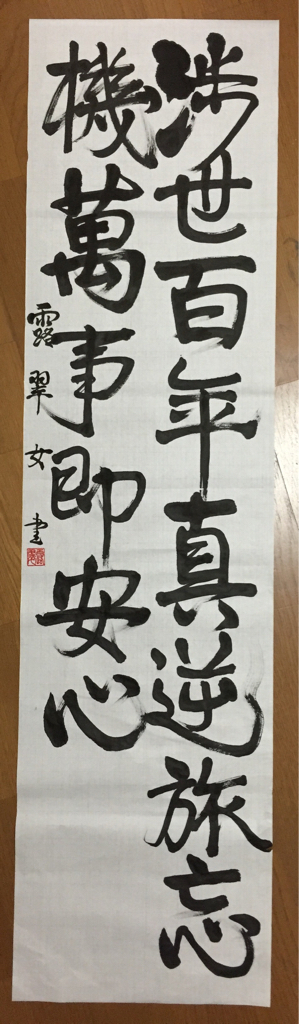 渉世百年真逆旅忘
機萬事即安心
露翠女書